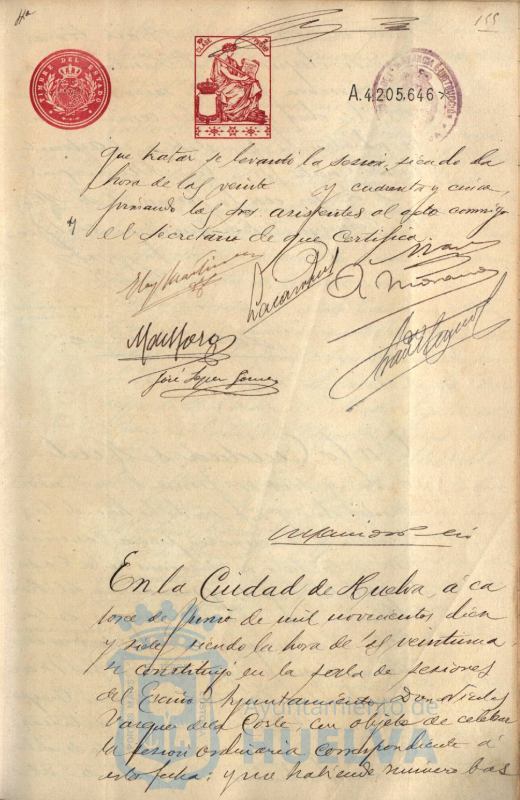 155
TIMBRE DEL ESTADO
A.4.205.646*
que tratar se levantó la sesion, siendo la
hora de las veinte y cuarenta y cinco,
firmando los Sres. asistentes al acto conmigo
el Secretario de que certifico.
José Lopez Gomez
En la Ciudad de Huelva, á ca
torce de Junio de mil novecientos diez
y siete siendo la hora de las veintiuna
se constituyó en la sala de sesiones
del Excmo Ayuntamiento Don Nicolas
Vazquez de la Corte con objeto de celebrar
la sesion ordinaria correspondiente á
esta fecha; y no habiendo numero bas
Ayuntamiento de
HUELVA